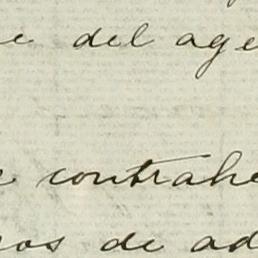 e del age
e contrahe
os de ad